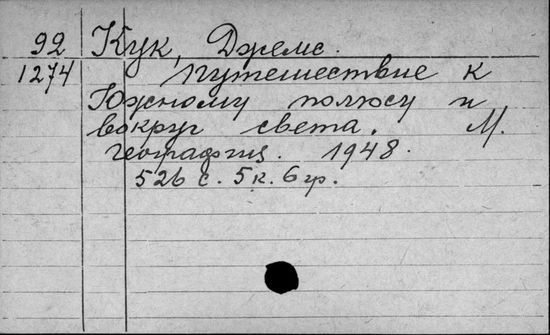 92 Кук, Джемс.
1274 Путешествие к
Южному полюсу и
вокруг света. М.
географгиз. 1948.
526 с. 5 к. 6 гр.